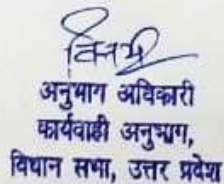 अनुभाग अधिकारी
कार्यवाही अनुभाग,
विधान सभा, उत्तर प्रदेश